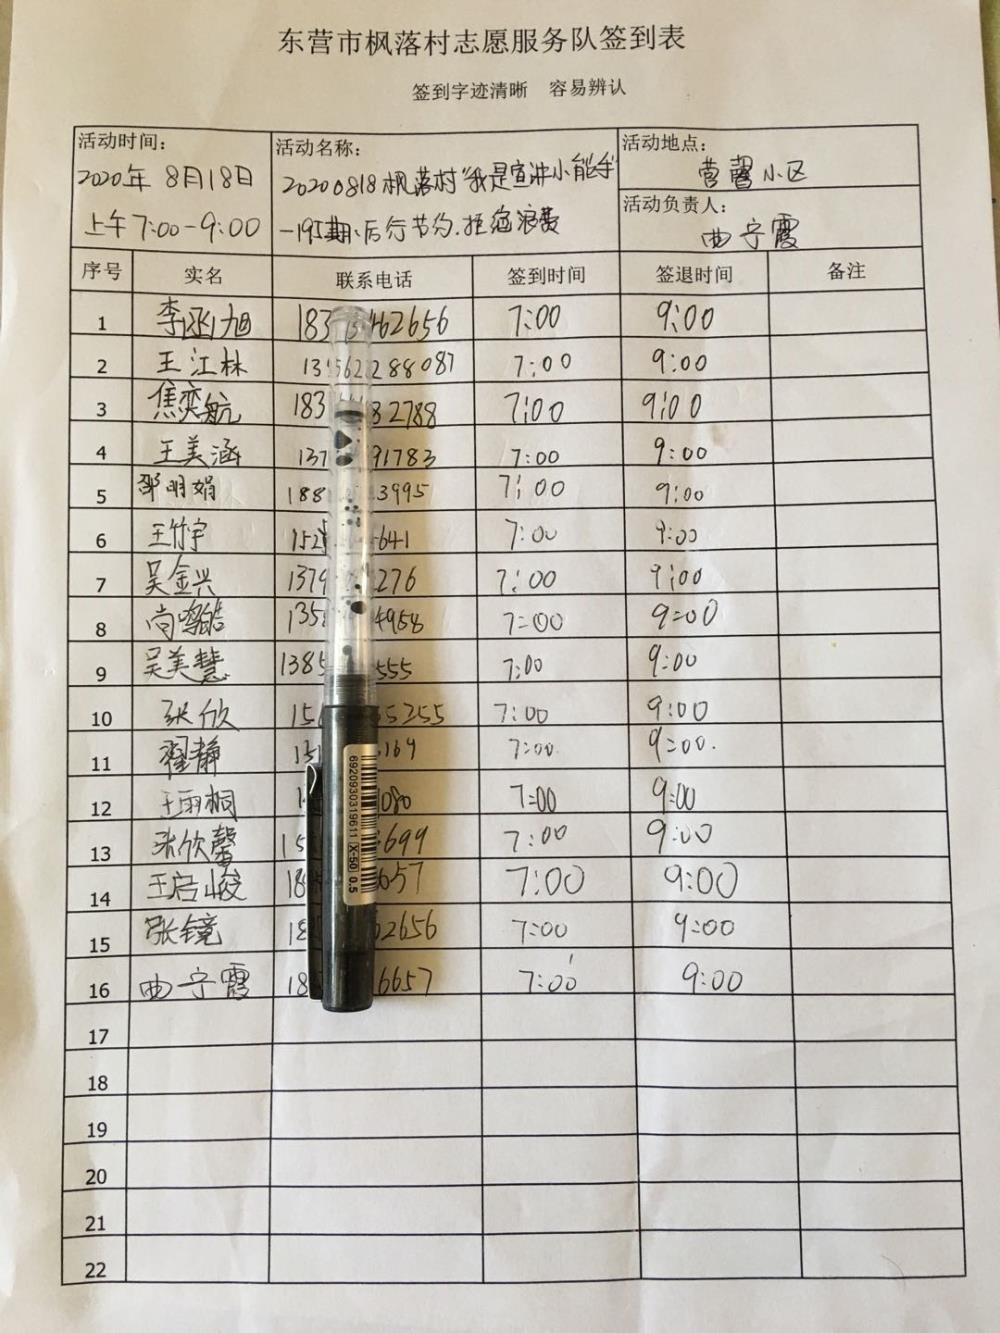 东营市枫落村志愿服务队签到表
签到字迹清晰 容易辨认
活动时间：
2020年8月18日
上午7:00-9:00
活动名称：
20200818枫落村“我是宣讲小能手”
-195期、厉行节约.拒绝浪费
活动地点：
营馨小区
活动负责人：
曲宁霞
序号 实名 联系电话 签到时间 签退时间 备注
1 李函旭 183 462656 7:00 9:00
2 王江林 288087 7:00 9:00
3 焦奕航 183 2788 7:00 9:00
4 王美涵 137 91783 7:00 9:00
5 邵明娟 188 3995 7:00 9:00
6 王竹宇 152 641 7:00 9:00
7 吴金兴 1379 276 7:00 9:00
8 尚鸣皓 135 4958 7:00 9:00
9 吴美慧 1385 555 7:00 9:00
10 张欣 15 5255 7:00 9:00
11 翟静 169 7:00. 9:00.
12 王雨桐 080 7:00 9:00
13 张欣馨 15 699 7:00 9:00
14 王启峻 18 657 7:00 9:00
15 张镜 18 2656 7:00 9:00
16 曲宁霞 18 6657 7:00 9:00
17
18
19
20
21
22
6920930319611 X-50 0.5